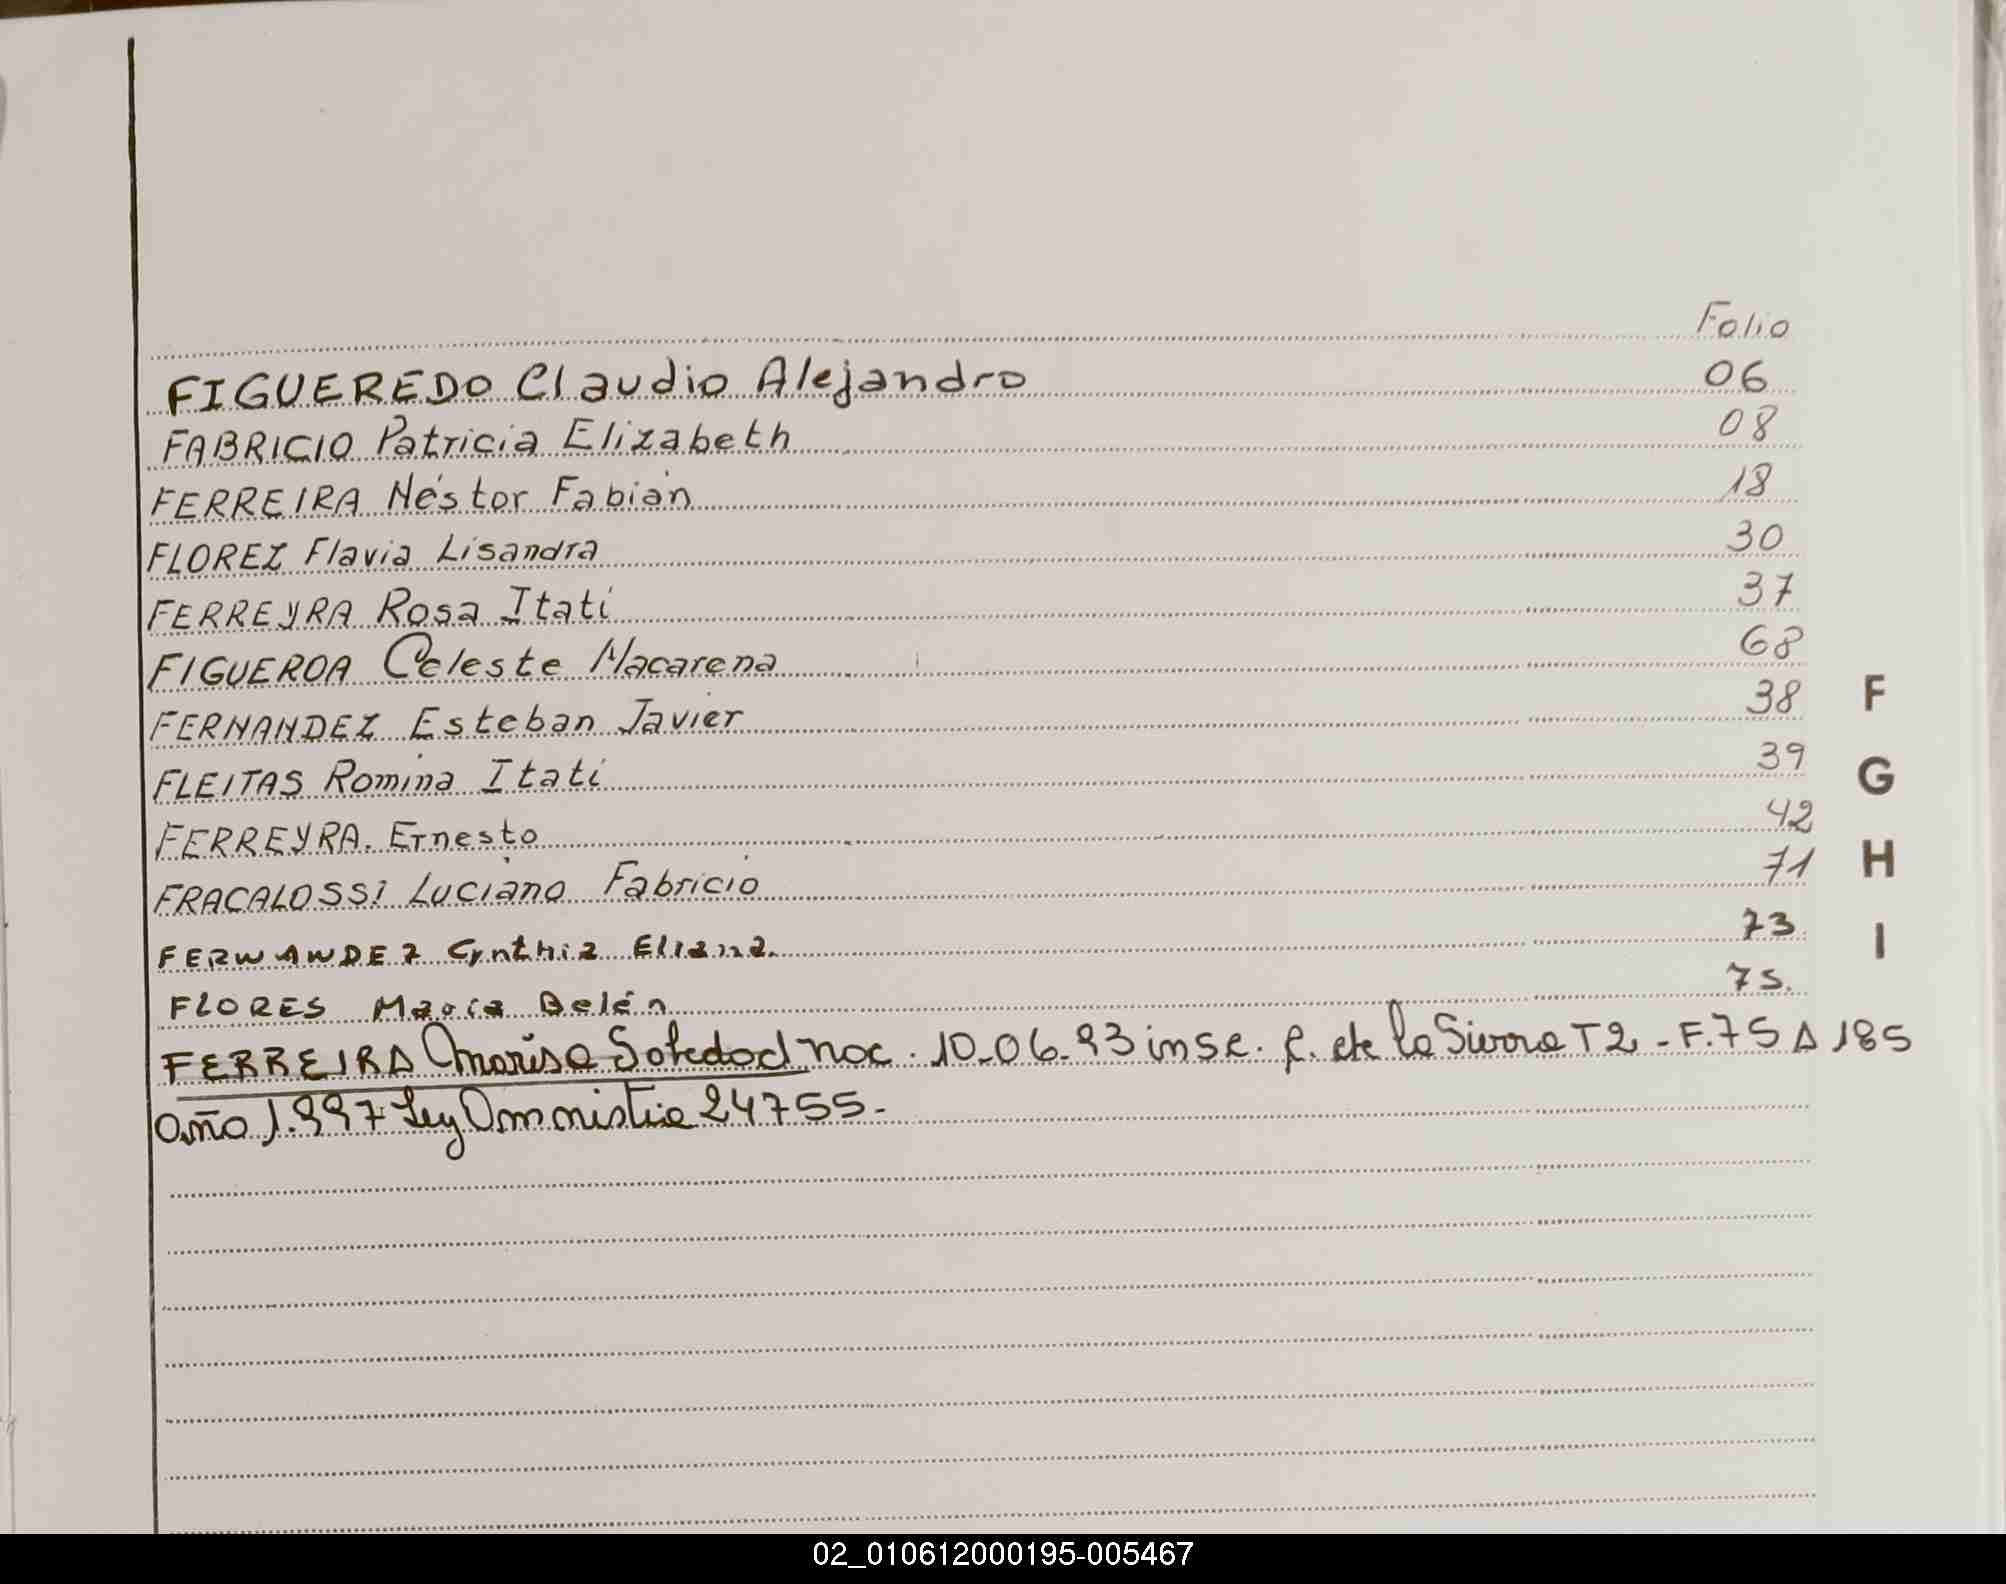 Folio
FIGUEREDO Claudio Alejandro 06
FABRICIO Patricia Elizabeth 08
FERREIRA Néstor Fabián 18
FLOREZ Flavia Lisandra 30
FERREYRA Rosa Itatí 37
FIGUEROA Celeste Macarena 68
FERNANDEZ Esteban Javier 38
F
FLEITAS Romina Itatí 39
G
FERREYRA. Ernesto 42
FRACALOSSI Luciano Fabricio 71
H
FERNANDEZ Cynthia Eliana. 73
I
FLORES María Belén 75.
FERREIRA Marisa Soledad nac. 10-06-93 insc. f. de la Sirora T2 - F.75 A 185
Año 1.997 Ley Amnistia 24755-
02_010612000195-005467